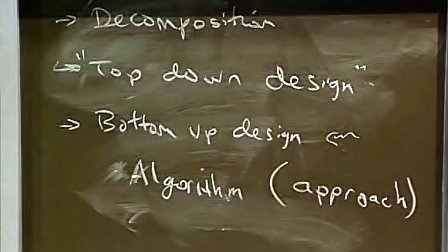 → Decomposition
→ "Top down design"
→ Bottom up design ←
Algorithm (approach)